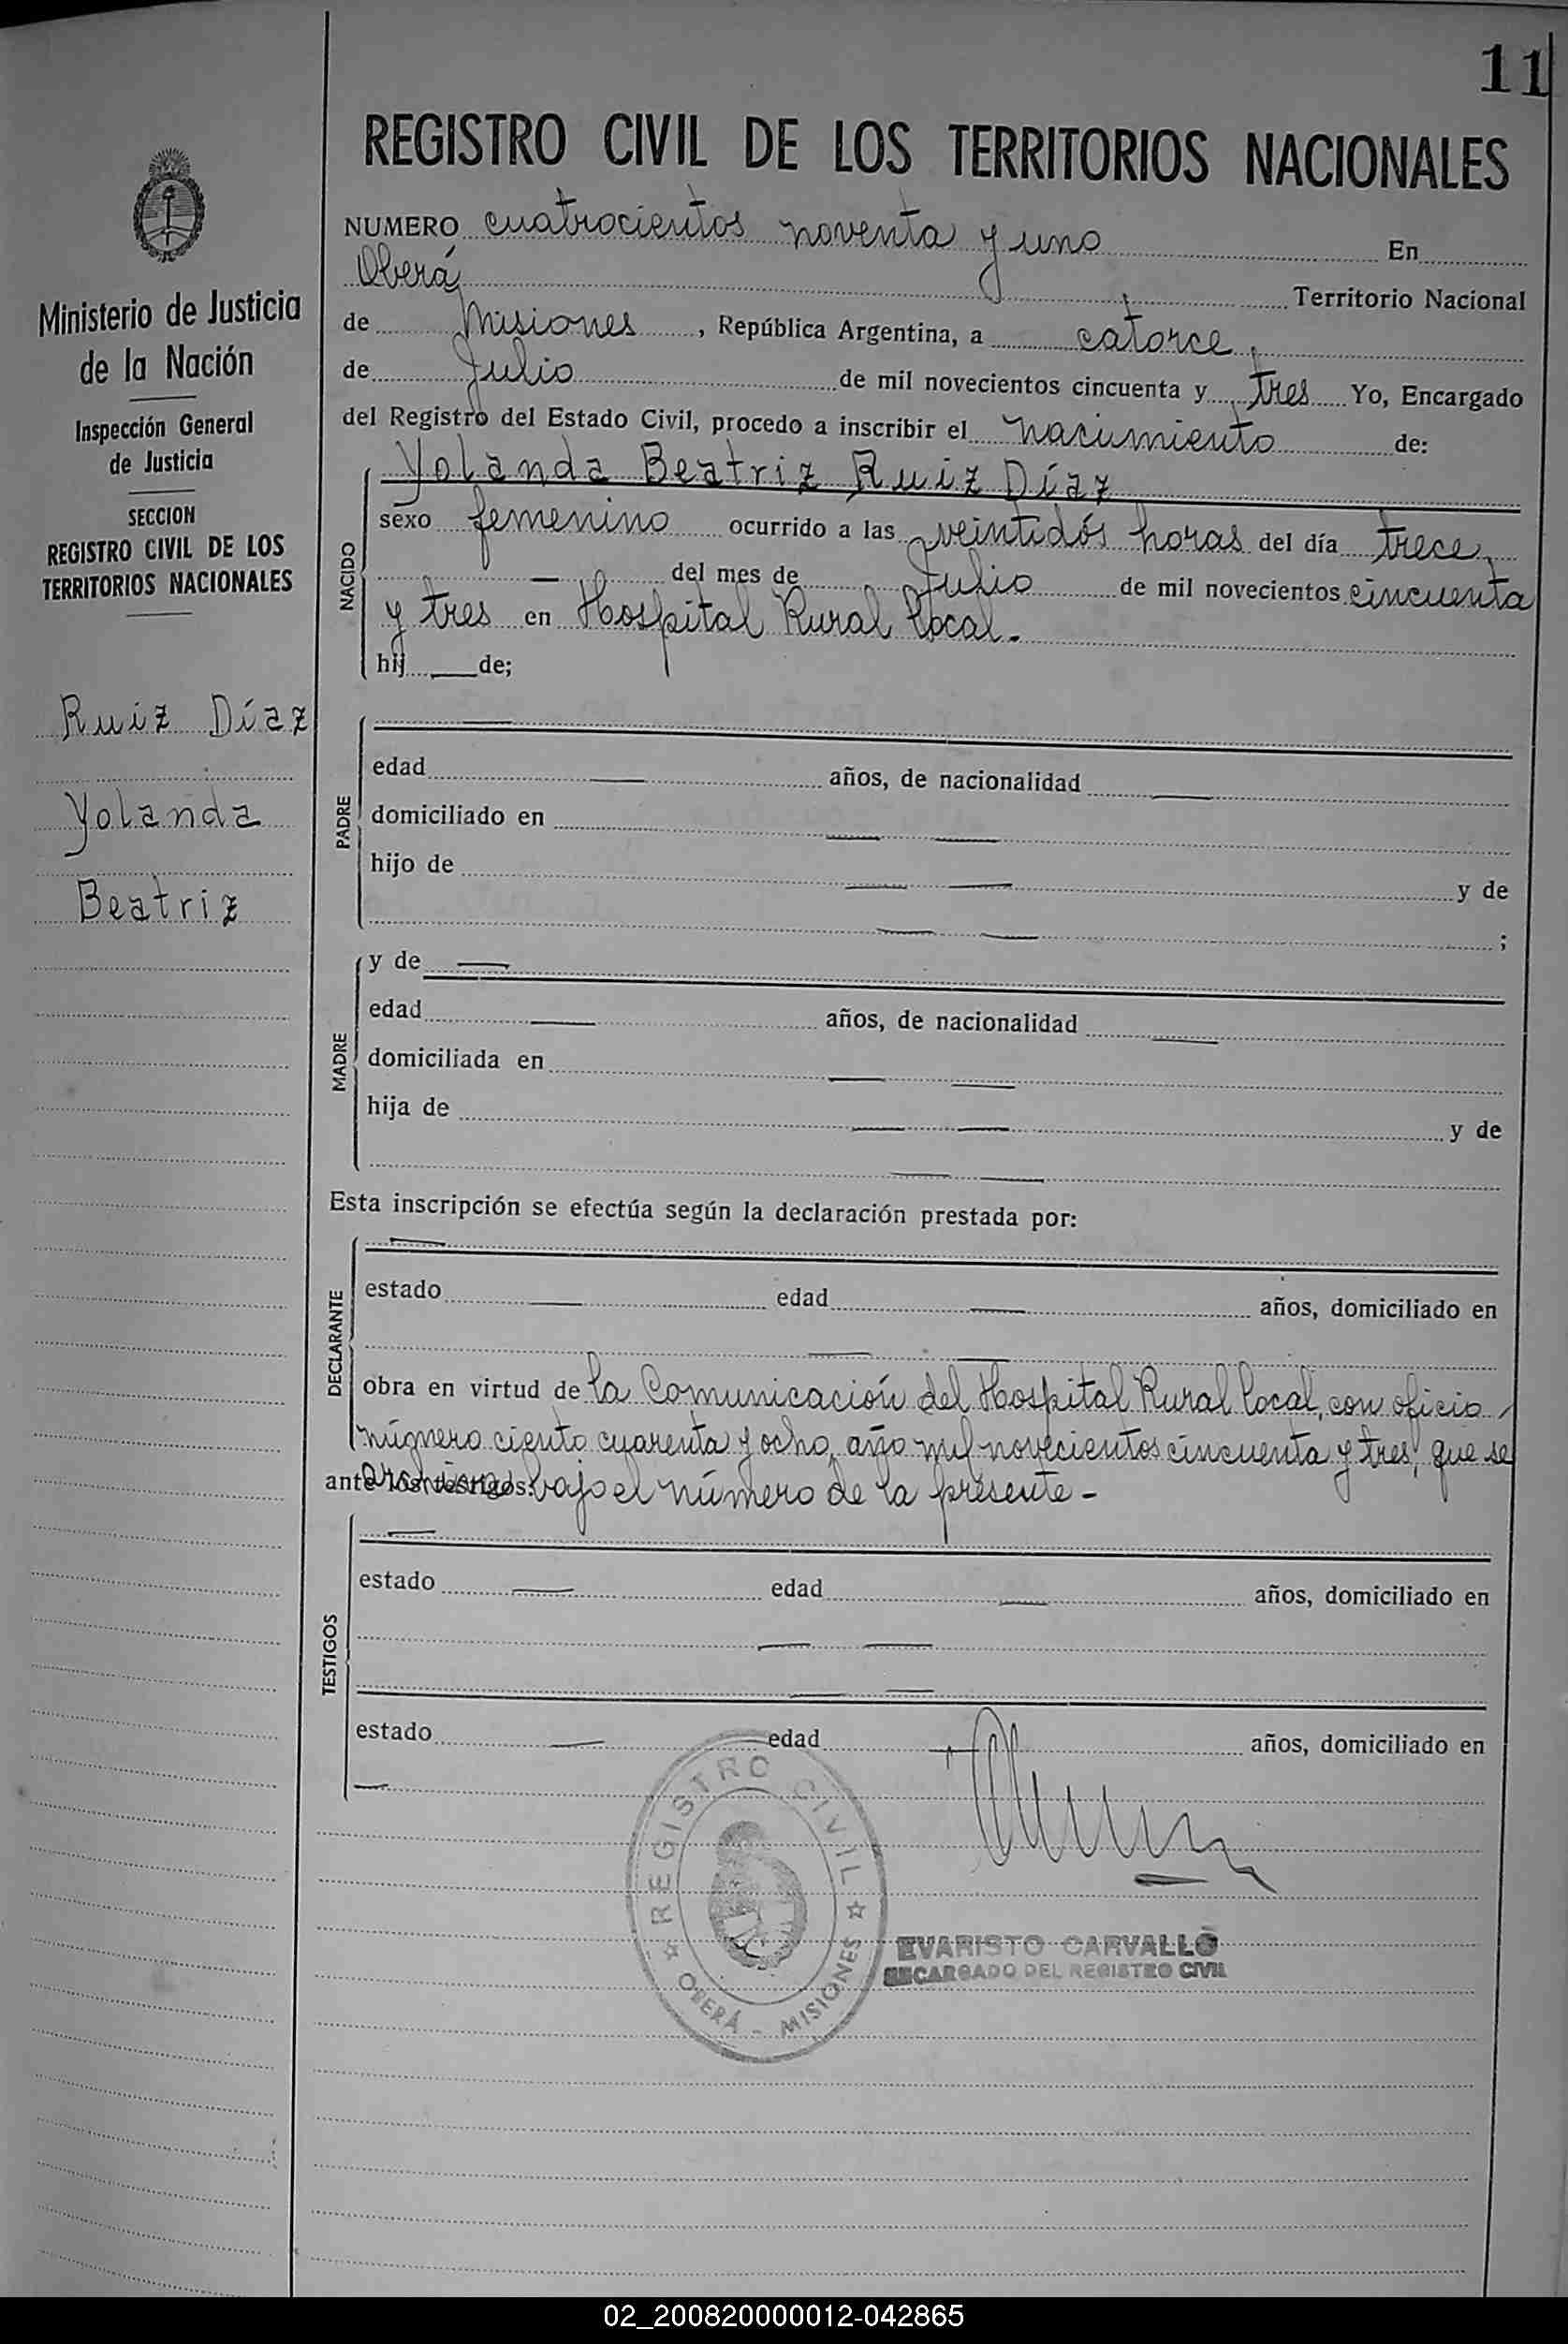 11
REGISTRO CIVIL DE LOS TERRITORIOS NACIONALES
Ministerio de Justicia
de la Nación
Inspección General
de Justicia
SECCION
REGISTRO CIVIL DE LOS
TERRITORIOS NACIONALES
Ruiz Díaz
Yolanda
Beatriz
NUMERO cuatrocientos noventa y uno En
Oberá, Territorio Nacional
de Misiones, República Argentina, a catorce,
de Julio de mil novecientos cincuenta y tres Yo, Encargado
del Registro del Estado Civil, procedo a inscribir el nacimiento de:
NACIDO
Yolanda Beatriz Ruiz Díaz
sexo femenino ocurrido a las veintidós horas del día trece,
— del mes de Julio de mil novecientos cincuenta
y tres en Hospital Rural Local.-
hij — de;
PADRE
—
edad — años, de nacionalidad —
domiciliado en — —
hijo de — — y de
— — ;
MADRE
y de —
edad — años, de nacionalidad —
domiciliada en — —
hija de — — y de
— —
Esta inscripción se efectúa según la declaración prestada por:
DECLARANTE
—
estado — edad — años, domiciliado en
— —
obra en virtud de la Comunicación del Hospital Rural Local, con oficio
número ciento cuarenta y ocho, año mil novecientos cincuenta y tres, que se
ante los testigos: archiva bajo el número de la presente-
TESTIGOS
—
estado — edad — años, domiciliado en
— —
— —
estado — edad — años, domiciliado en
—
REGISTRO CIVIL
OBERÁ - MISIONES
EVARISTO CARVALLO
ENCARGADO DEL REGISTRO CIVIL
02_200820000012-042865